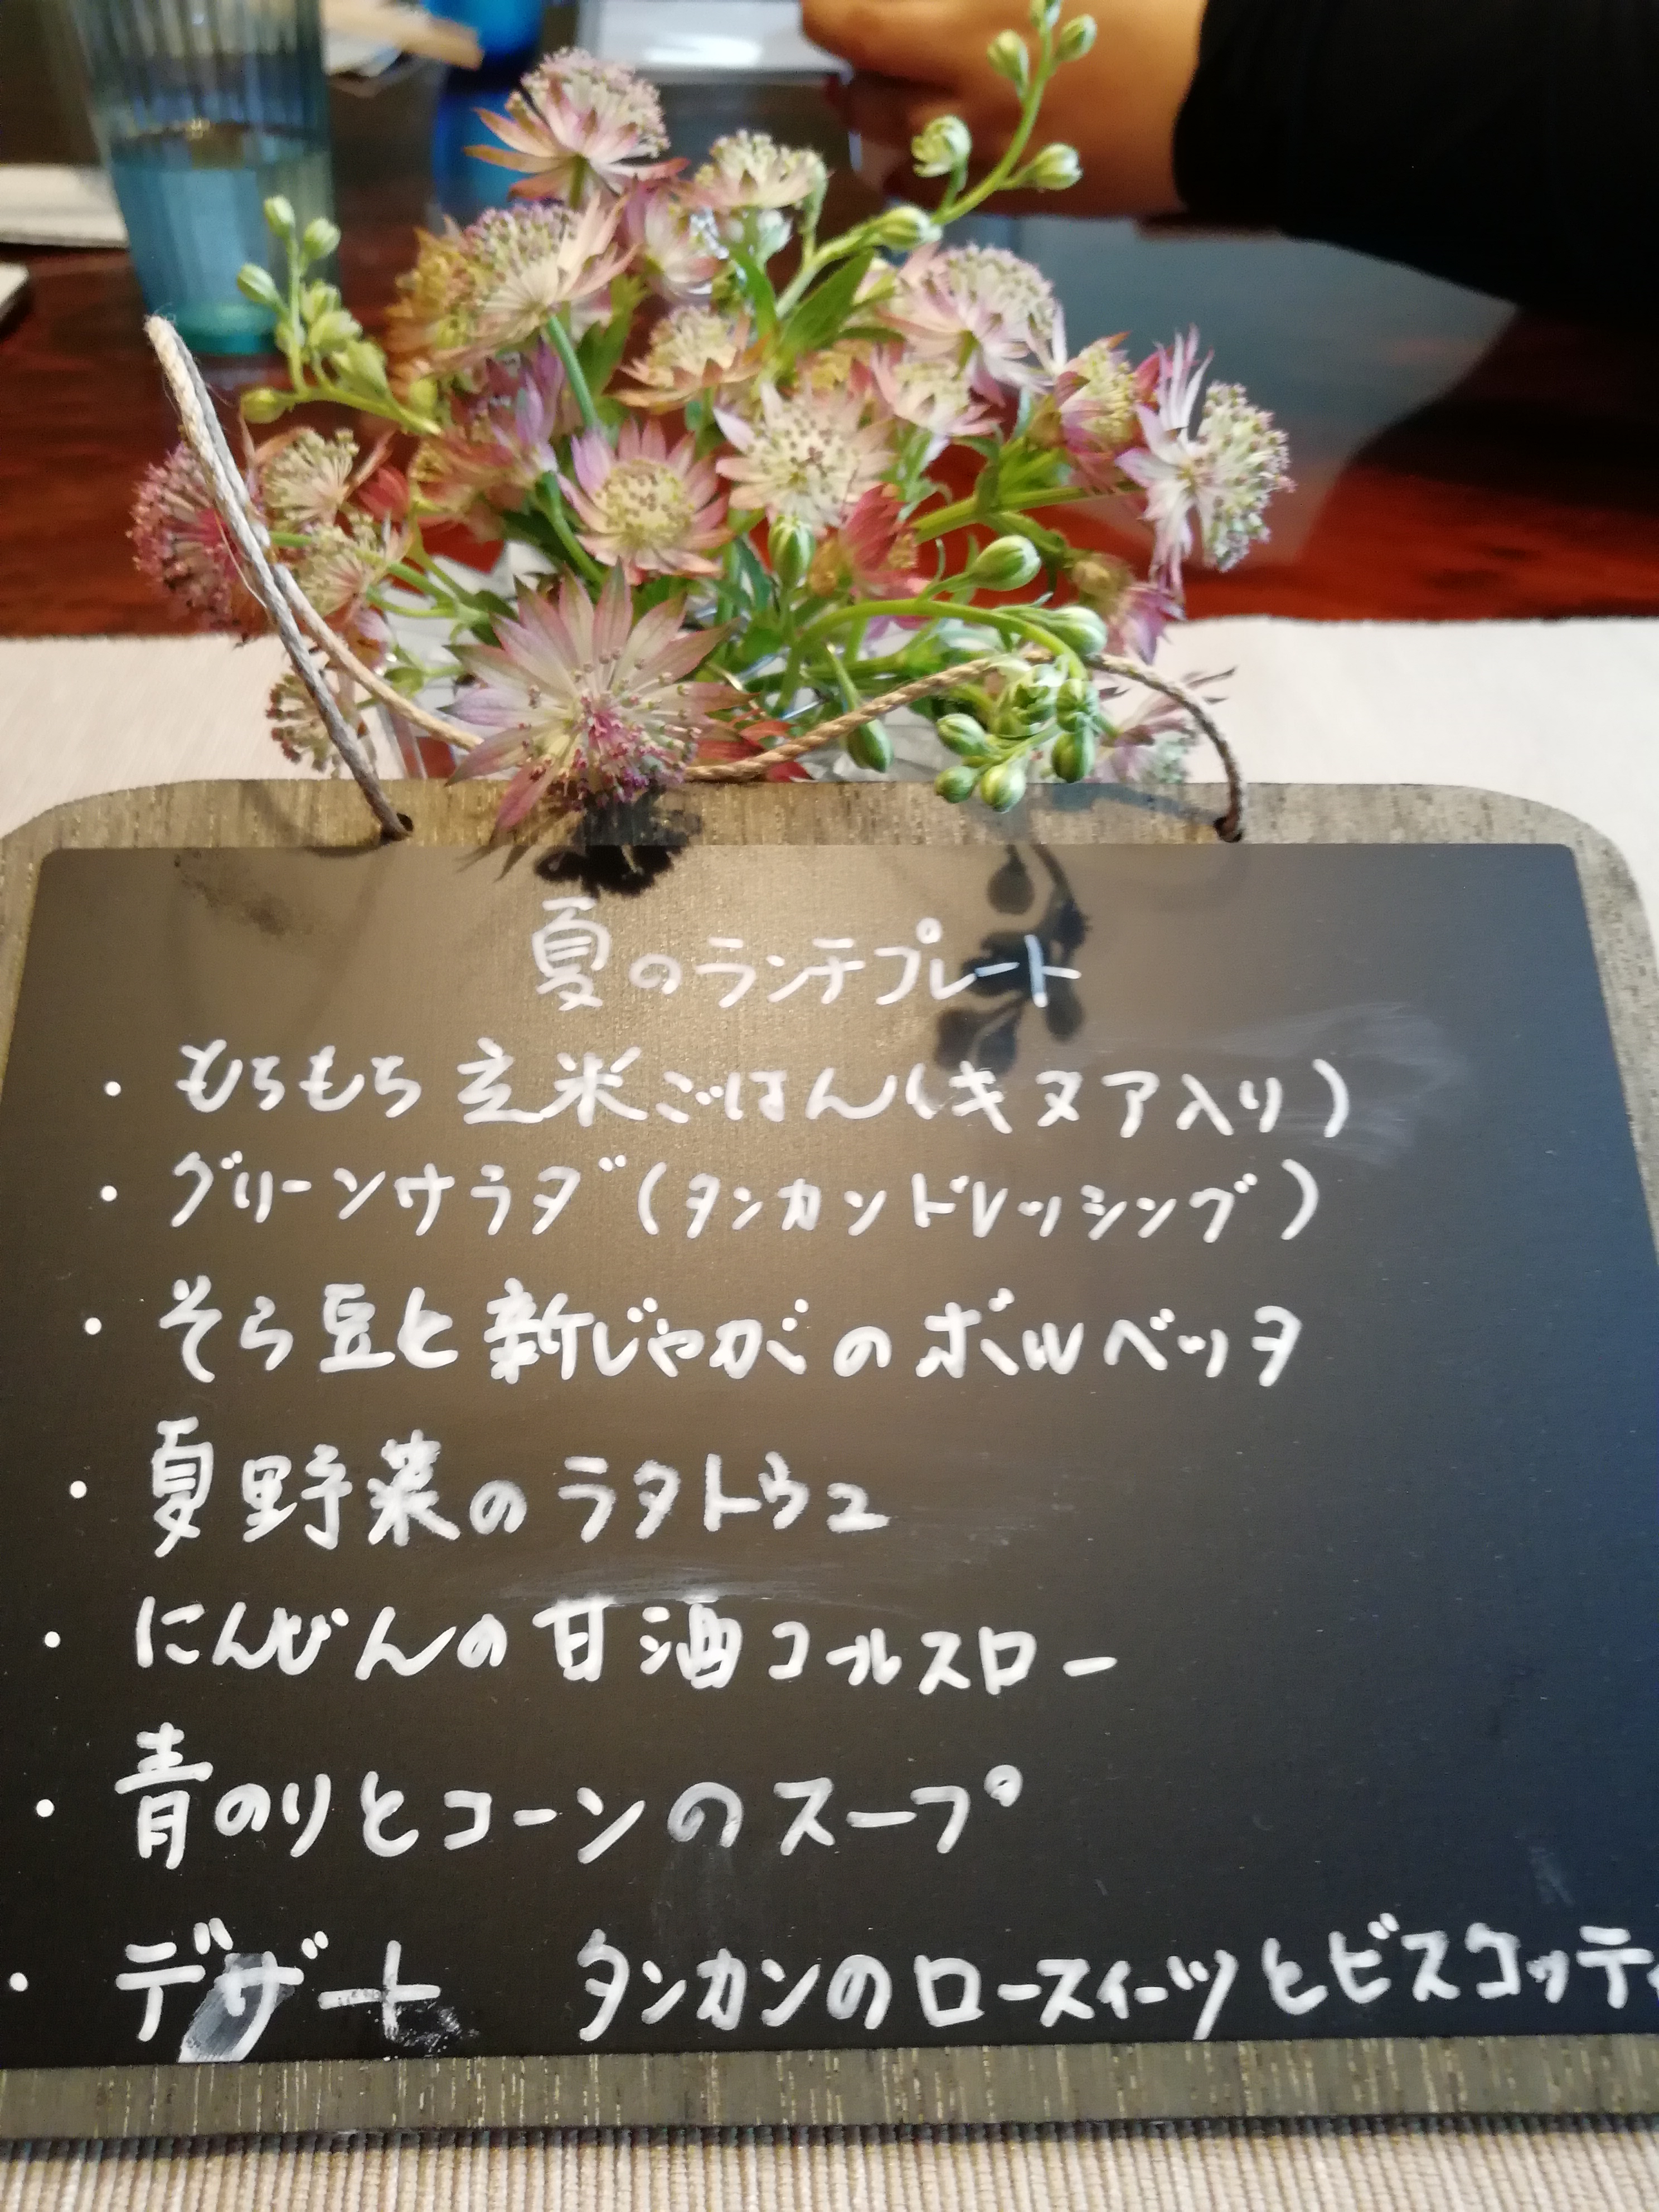 夏のランチプレート
・もちもち玄米ごはん(キヌア入り)
・グリーンサラダ(タンカンドレッシング)
・そら豆と新じゃがのポルペッタ
・夏野菜のラタトゥユ
・にんじんの甘酒コールスロー
・青のりとコーンのスープ
・デザート タンカンのロースイーツとビスコッティ